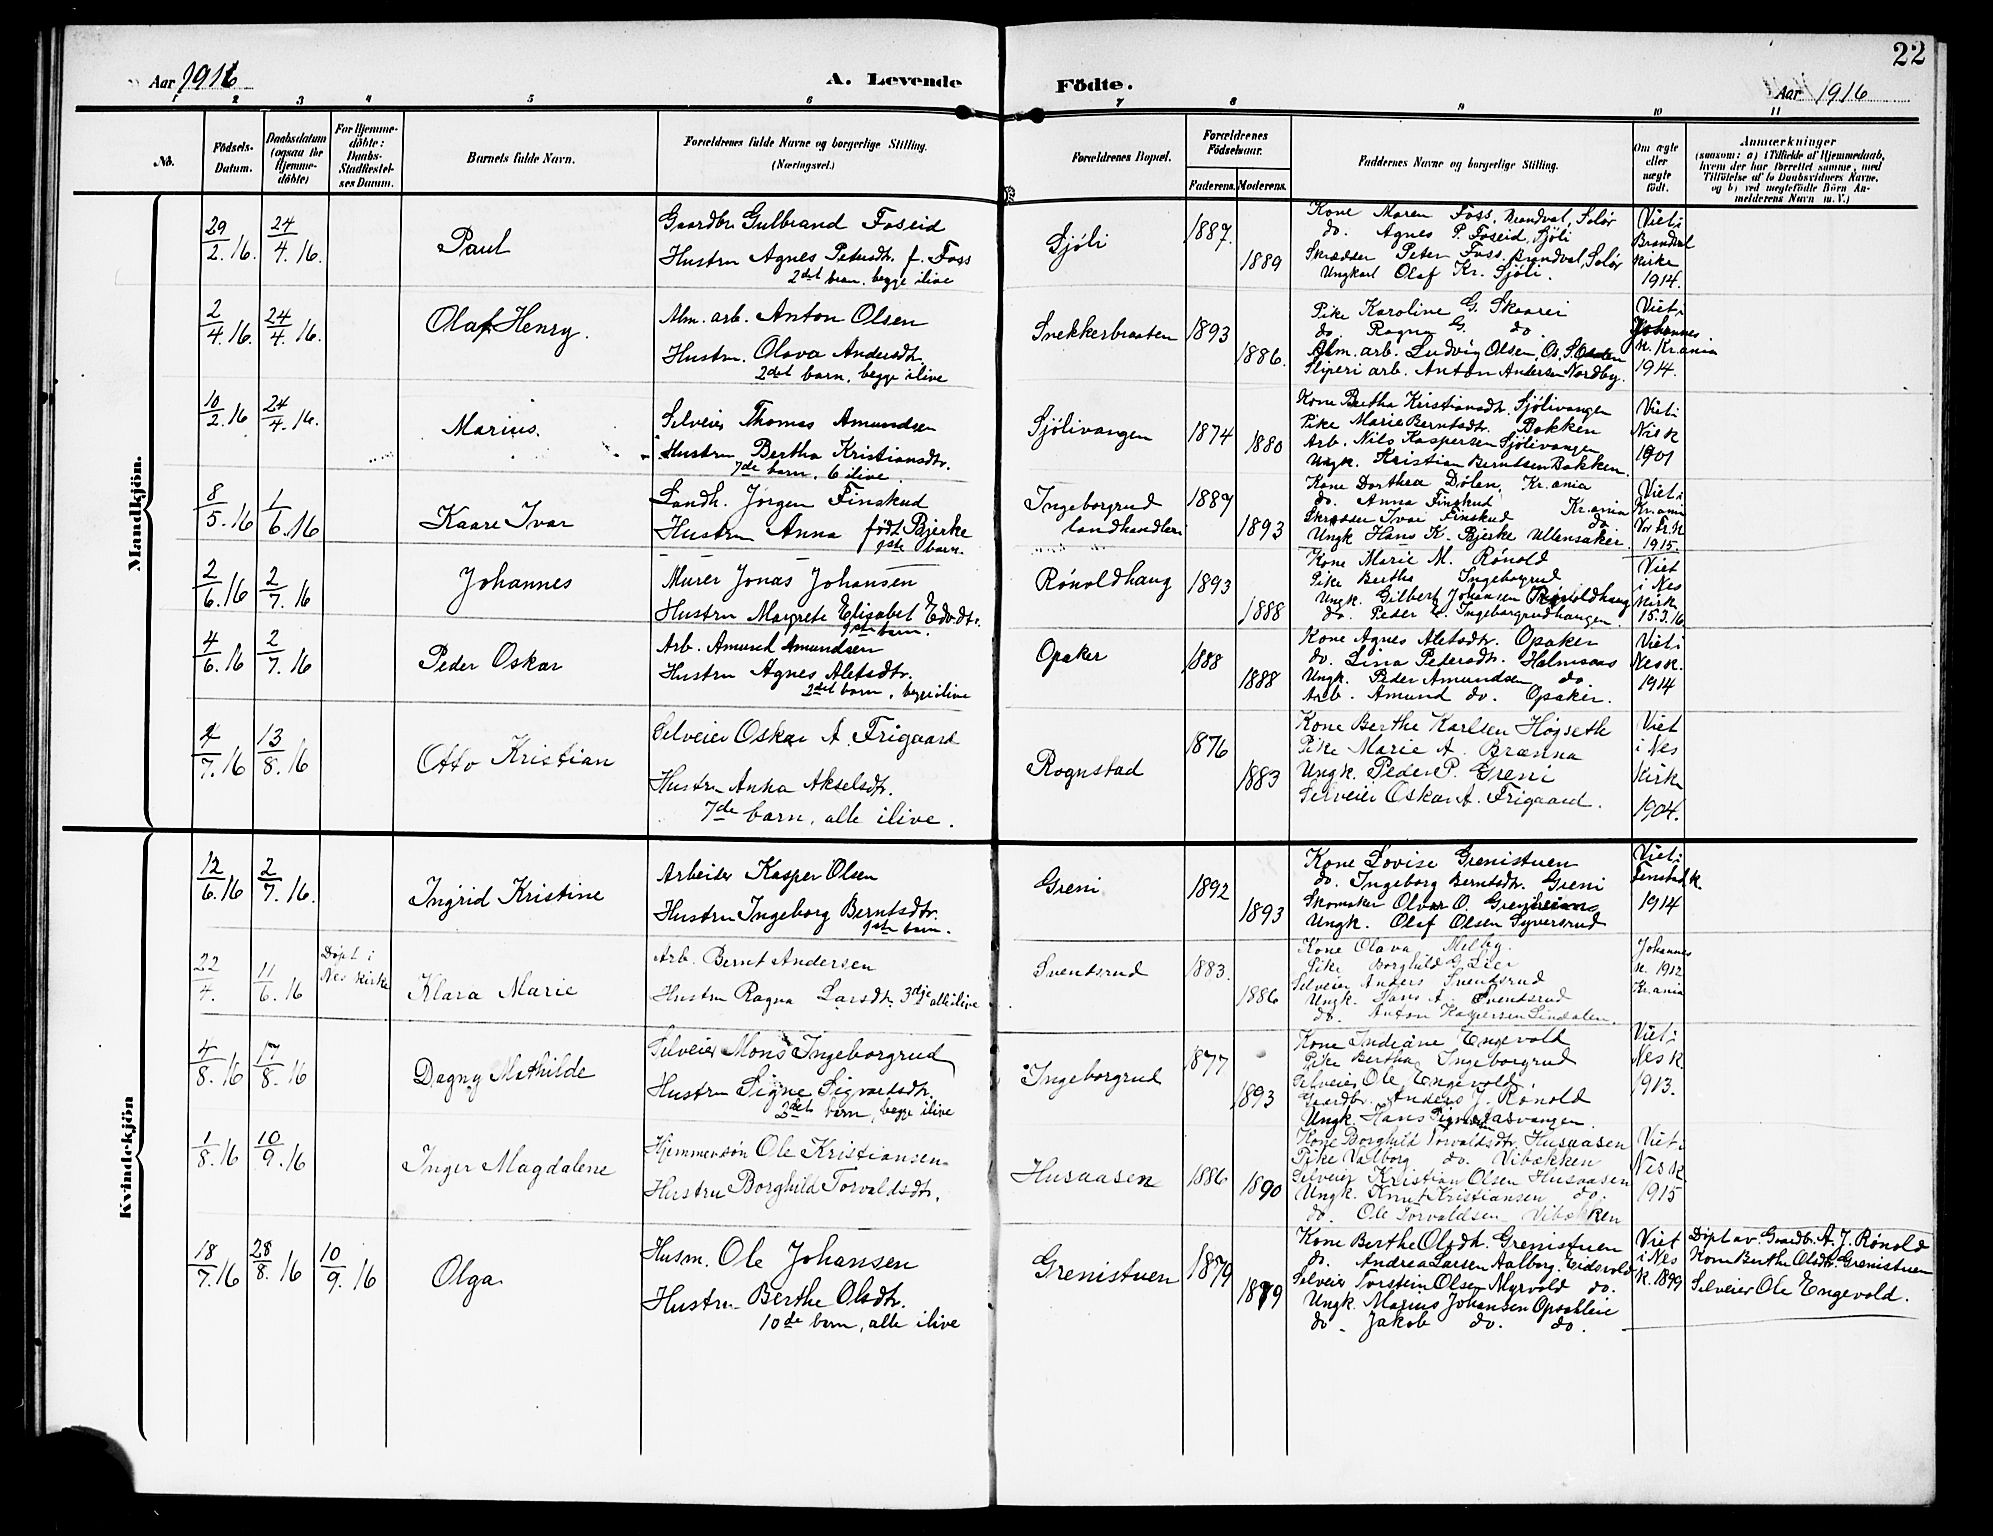 22
Aar 1916
A. Levende
Födte.
Aar 1916
1 2 3 4 5 6 7 8 9 10 11
No.
Födsels-
Datum.
Daabsdatum
(ogsaa for
Hjemme-
döbte)
For Hjemme-
döbte:
Daabs-
Stadfæstel-
ses Datum.
Barnets fulde Navn.
Forældrenes fulde Navne og borgerlige Stilling.
(Næringsvei.)
Forældrenes Bopæl.
Forældrenes
Födselsaar.
Faderens. Moderens.
Faddernes Navne og borgerlige Stilling.
Om ægte
eller
uægte
födt.
Anmærkninger
(saasom: a) i Tilfælde af Hjemmedaab,
hvem der har forrettet samme, med
Tilföielse af to Daabsvidners Navne,
og b) ved uægtefödte Börn An-
melderens Navn m. V.)
Mandkjön.
29/2.16. 24/4.16. Paul
Gaardbr. Gulbrand Foseid
Hustru Agnes Petersdtr. f. Foss
2det barn, begge ilive
Sjöli
1887.
1889
Kone Maren Foss, Brandval, Solør
do. Agnes P. Foseid, Sjöli
Skrædder Peter Foss. Brandval, Solør
Ungkarl Olaf Kr. Sjöli.
Viet i
Brandval
Kirke
1914.
2/4.16. 24/4.16. Olaf Henry.
Alm. arb. Anton Olsen
Hustru. Olava Andersdtr.
2det barn, begge ilive
Snekkerbraaten
1893
1886.
Pike Karoline G. Skaarer
do. Ragna G. do
Alm. arb. Ludvig Olsen, Os,
Sliperi arb. Anton Andersen Nordby.
Viet i
Johannes
k. Kr.ania
1914.
10/2.16 24/4.16. Marius.
Selveier Thomas Amundsen
Hustru Bertha Kristiansdtr.
7de barn, 6 ilive
Sjölivangen
1874
1880
Kone Bertha Kristiansdtr. Sjölivangen
Pike Marie Berntsdt. Bakken
Arb. Nils Kaspersen Sjölivangen
Ungk. Kristian Berntsen Bakken.
Viet i
Nes k
1901
8/5.16 1/6.16 Kaare Ivar
Landh. Jørgen Finskud
Hustru Anna født Bjerke
1ste barn.
Ingeborgrud
landhandleri
1889
1893
Kone Dorthea Dølen, Kr.ania
do. Anna Finskud Kr.ania
Skrædder Ivar Finskud do
Ungk Hans K. Bjerke Ullensaker.
Viet i
Kr.ania
Vor Fr. K
1915.
2/6.16 2/7.16 Johannes
Murer Jonas Johansen
Hustru Margrete Elisabet Edv.dtr.
1ste barn.
Rónoldhaug
1893
1888
Kone Marie M. Rónold
Pike Bertha Ingeborgrud
Ungk. Gilbert Johansen Rónoldhaug
do. Peder E. Ingeborgrudhaugen.
Viet
i Nes
Kirk
15.3.16
4/6.16 2/7.16 Peder Oskar
Arb. Amund Amundsen
Hustru Agnes Aletsdtr.
2det barn, begge ilive
Opaker
1888
1888
Kone Agnes Aletsdtr. Opaker
do. Lina Pedersdtr. Holmsaas
Ungk. Peder Amundsen do
Arb. Amund do. Opaker.
Viet i
Nes k.
1914
4/7.16 13/8.16 Otto Kristian
Selveier Oskar A. Frigaard
Hustru Anna Akselsdtr.
7de barn, alle ilive.
Rognstad
1876
1883
Kone Berthe Karlsen Højseth
Pike Marie A. Brænna
Ungk. Peder P. Greni
Selveier Oskar A. Frigaard.
Viet
i Nes
Kirk
1904.
Kvindekjön
12/6.16 2/7.16. Ingrid Kristine
Arbeider Kasper Olsen
Hustru Ingeborg Berntsdtr.
1ste barn.
Greni
1892
1893
Kone Lovise Grenistuen
do. Ingeborg Berntsdtr. Greni
Skomaker Olvar O.
Ungk. Olaf Olsen Syversrud
Viet i
Fenstad k.
1914
22/4. 11/6.16
Døpt i
Nes Kirke
Klara Marie
Arb. Bernt Andersen
Hustru Ragna Larsdtr. 3dje alle ilive
Svendsrud
1883.
1886
Kone Olava Melby.
Pike Borghild G Lier
Selveier Anders Svendsrud
Ungk. Hans A. Svendsrud
do. Anton Kaspersen Lindalen.
Johannes
k. 1912
Kr.ania
4/8.16 17/8.16 Dagny Mathilde
Selveier Mons Ingeborgrud
Hustru Signe Sigvartsdtr.
2det barn, begge ilive
Ingeborgrud
1877
1893
Kone Indiane Engevold
Pike Bertha Ingeborgrud
Selveier Ole Engevold.
Gaardbr. Anders J. Rónold
Ungk. Hans
Viet i
Nes k
1913.
1/8.16 10/9.16 Inger Magdalene
Hjemmesön Ole Kristiansen
Hustru Borghild Torvaldsdtr.
Husaasen
1886
1890
Kone Borghild Torvaldsdtr. Husaasen
Pike Valborg do. Vibækken
Selveier Kristian Olsen Husaasen
Ungk. Knut Kristiansen do.
do. Ole Torvaldsen Vibækken
Viet i
Nes k
1915
18/7.16 28/8.16 10/9.16 Olga.
Husm. Ole Johansen
Hustru Berthe Olsdtr.
10de barn, alle ilive
Grenistuen
1879
1879
Kone Berthe Olsdtr. Grenistuen
do. Andrea Larsen Aalborg. Eidsvold
Selveier Torstein Olsen Myrvold do.
Ungk. Marius Johansen Opsahleie
do - Jakob do. do.
Viet
i Nes
k. 1899
Döpt av. Gaardb. A. J. Rónold
Kone Berthe Olsdtr. Grenistuen
Selveier Ole Engevold.